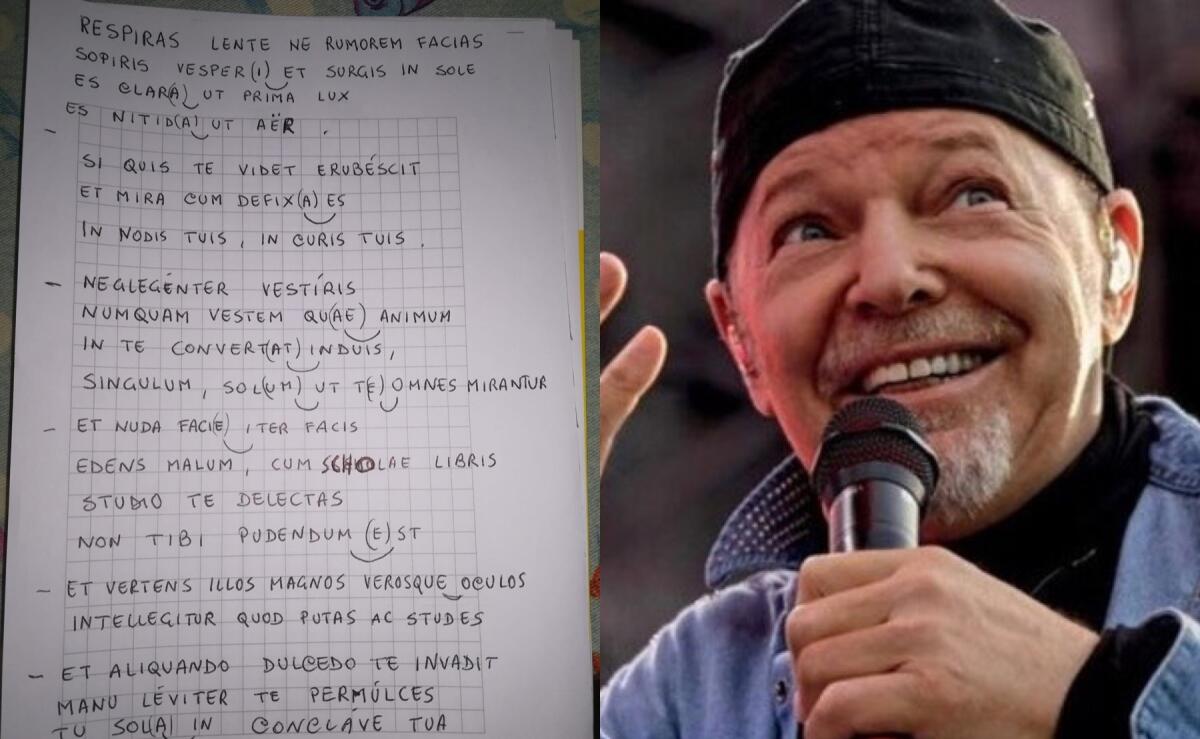 RESPIRAS LENTE NE RUMOREM FACIAS
SOPIRIS VESPER(I) ET SURGIS IN SOLE
ES CLAR(A) UT PRIMA LUX
ES NITID(A) UT AËR .
- SI QUIS TE VIDET ERUBÉSCIT
ET MIRA CUM DEFIX(A) ES
IN NODIS TUIS, IN CURIS TUIS.
- NEGLEGÉNTER VESTÍRIS
NUMQUAM VESTEM QU(AE) ANIMUM
IN TE CONVERT(AT) INDUIS,
SINGULUM, SOL(UM) UT T(E) OMNES MIRANTUR
- ET NUDA FACI(E) ITER FACIS
EDENS MALUM, CUM SCHOLAE LIBRIS
STUDIO TE DELECTAS
NON TIBI PUDENDUM (E)ST
- ET VERTENS ILLOS MAGNOS VEROSQUE OCULOS
INTELLEGITUR QUOD PUTAS AC STUDES
- ET ALIQUANDO DULCEDO TE INVADIT
MANU LÉVITER TE PERMÚLCES
TU SOL(A) IN CONCLÁVE TUA